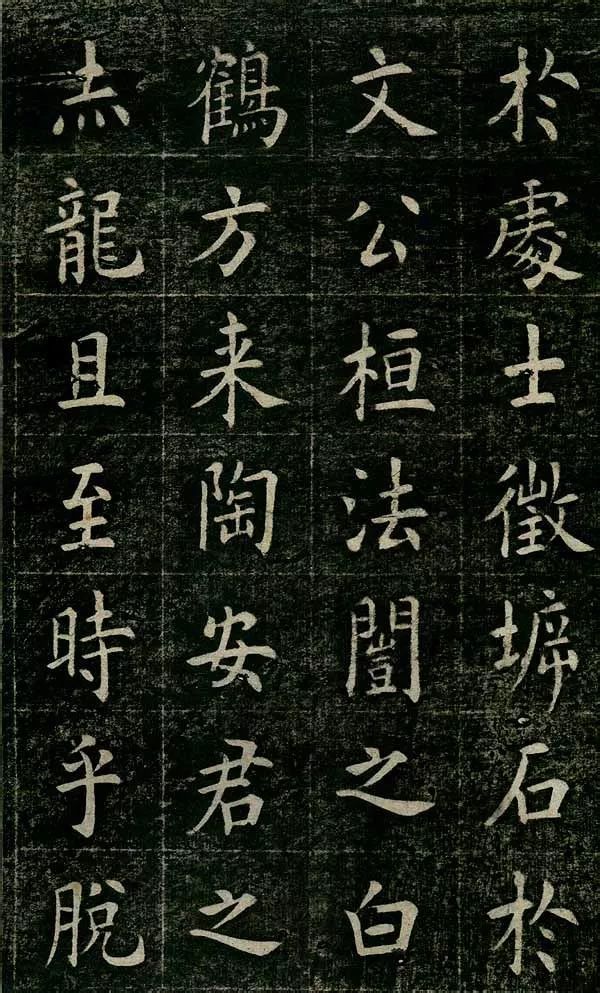 於處士徵石於
文公桓法闓之白
鶴方来陶安君之
赤龍且至時乎脫